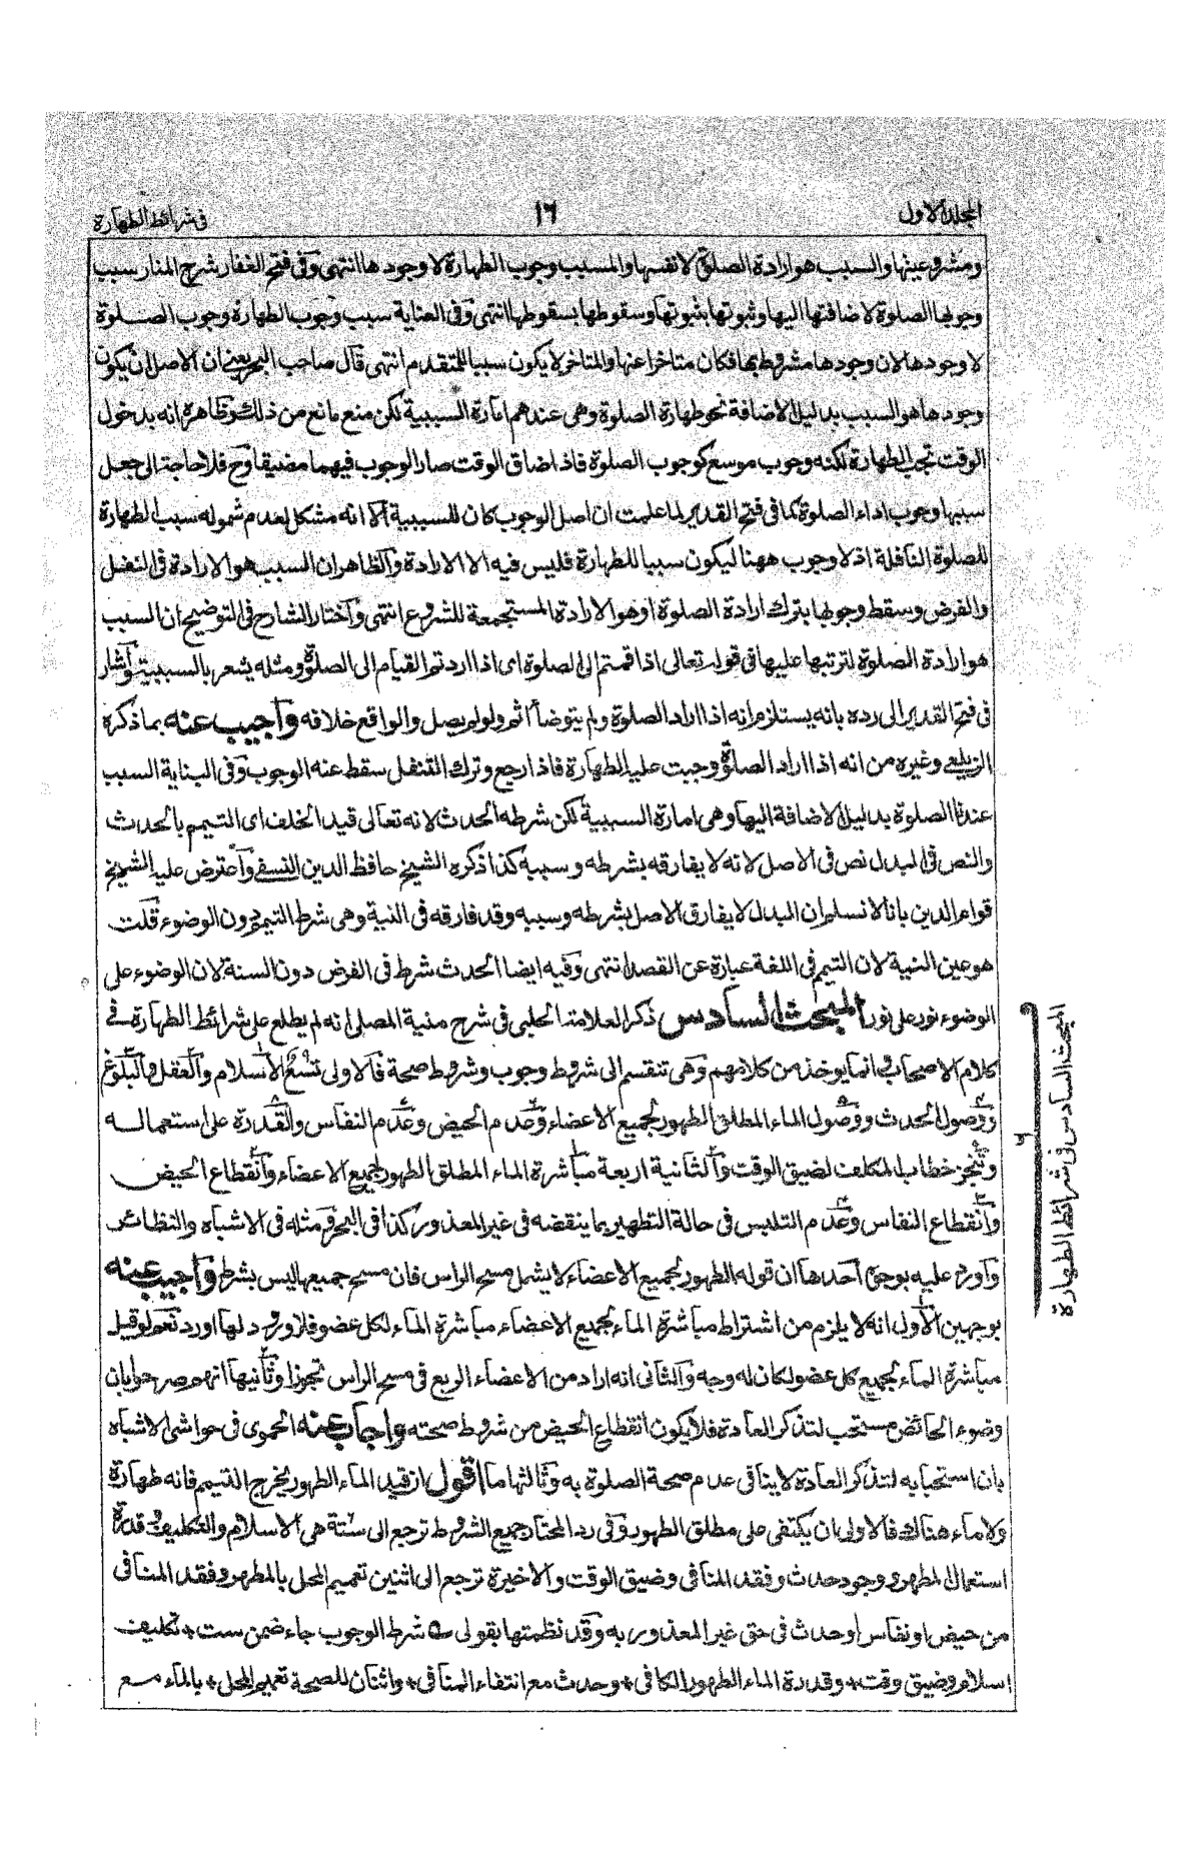 المجلد الاول
١٦
فى شرائط الطهارة
ومشروعيتها والسبب هو ارادة الصلوة لا نفسها والمسبب وجوب الطهارة لا وجودها انتهى وفى فتح الغفار شرح المنار سبب
وجوبها الصلوة لاضافتها اليها وثبوتها بثبوتها وسقوطها بسقوطها انتهى وفى العناية سبب وجوب الطهارة وجوب الصلوة
لا وجودها لان وجودها مشروط بها فكان متاخرا عنها والمتاخر لا يكون سببا للمتقدم انتهى قال صاحب البحر يعنى ان الاصل ان يكون
وجودها هو السبب بدليل الاضافة نحو طهارة الصلوة وهى عندهم امارة السببية لكن منع مانع من ذلك وظاهره انه بدخول
الوقت تجب الطهارة لكنه وجوب موسع كوجوب الصلوة فاذا ضاق الوقت صار الوجوب فيهما مضيقا وح فلا حاجة الى جعل
سببها وجوب اداء الصلوة كما فى فتح القدير لما علمت ان اصل الوجوب كان للسببية الا انه مشكل لعدم شموله سبب الطهارة
للصلوة النافلة اذ لا وجوب ههنا ليكون سببا للطهارة فليس فيه الا الارادة والظاهر ان السبب هو الارادة فى النفل
والفرض وسقط وجوبها بترك ارادة الصلوة او هو الارادة المستجمعة للشروع انتهى واختار الشارح فى التوضيح ان السبب
هو ارادة الصلوة لترتبها عليها فى قوله تعالى اذا قمتم الى الصلوة اى اذا اردتم القيام الى الصلوة ومثله يشعر بالسببية واشار
فى فتح القدير الى رده بانه يستلزم انه اذا اراد الصلوة ولم يتوضأ اثم ولو لم يصل والواقع خلافه واجيب عنه بما ذكره
الزيلعى وغيره من انه اذا اراد الصلوة وجبت عليه الطهارة فاذا رجع وترك التنفل سقط عنه الوجوب وفى البناية السبب
عندنا الصلوة بدليل الاضافة اليها وهى امارة السببية لكن شرطه الحدث لانه تعالى قيد الخلف اى التيمم بالحدث
والنص فى البدل نص فى الاصل لانه لا يفارقه بشرطه وسببه كذا ذكره الشيخ حافظ الدين النسفى واعترض عليه الشيخ
قوام الدين بانا لا نسلم ان البدل لا يفارق الاصل بشرطه وسببه وقد فارقه فى النية وهى شرط التيمم دون الوضوء قلت
هو عين النية لان التيمم فى اللغة عبارة عن القصد انتهى وفيه ايضا الحدث شرط فى الفرض دون السنة لان الوضوء على
الوضوء نور على نور المبحث السادس ذكر العلامة الحلبى فى شرح منية المصلى انه لم يطلع على شرائط الطهارة فى
كلام الاصحاب وانما يوخذ من كلامهم وهى تنقسم الى شروط وجوب وشروط صحة فالاولى تسع الاسلام والعقل والبلوغ
ووصول الحدث ووصول الماء المطلق الطهور لجميع الاعضاء وعدم الحيض وعدم النفاس والقدرة على استعماله
وتنجز خطاب المكلف لضيق الوقت والثانية اربعة مباشرة الماء المطلق الطهور لجميع الاعضاء وانقطاع الحيض
وانقطاع النفاس وعدم التلبس فى حالة التطهير بما ينقضه فى غير المعذور كذا فى البحر ومثله فى الاشباه والنظائر
واورد عليه بوجوه احدها ان قوله الطهور لجميع الاعضاء لا يشمل مسح الراس فان مسح جميعها ليس بشرط واجيب عنه
بوجهين الاول انه لا يلزم من اشتراط مباشرة الماء لجميع الاعضاء مباشرة الماء لكل عضو فلا ورود لها اورد نعم لو قيل
مباشرة الماء لجميع كل عضو لكان له وجه والثانى انه اراد من الاعضاء الربع فى مسح الراس تجوزا وثانيها انهم صرحوا بان
وضوء الحائض مستحب لتذكر العادة فلا يكون انقطاع الحيض من شروط صحته واجاب عنه الحموى فى حواشى الاشباه
بان استحبابه لتذكر العادة لا ينافى عدم صحة الصلوة به وثالثها ما اقول ان قيد الماء الطهور يخرج التيمم فانه طهارة
ولا ماء هناك فالاولى ان يكتفى على مطلق الطهور وفى رد المحتار جميع الشروط ترجع الى ستة هى الاسلام والتكليف وقدرة
استعمال المطهر ووجود حدث وفقد المنافى وضيق الوقت والاخيرة ترجع الى اثنين تعميم المحل بالمطهر وفقد المنافى
من حيض او نفاس او حدث فى حق غير المعذور به وقد نظمتها بقولى شرط الوجوب جاء ضمن ست * تكليف
اسلام وضيق وقت * وقدرة الماء الطهور الكافى * وحدث مع انتفاء المنافى * واثنان للصحة تعميم المحل * بالماء مع
المبحث السادس فى شرائط الطهارة